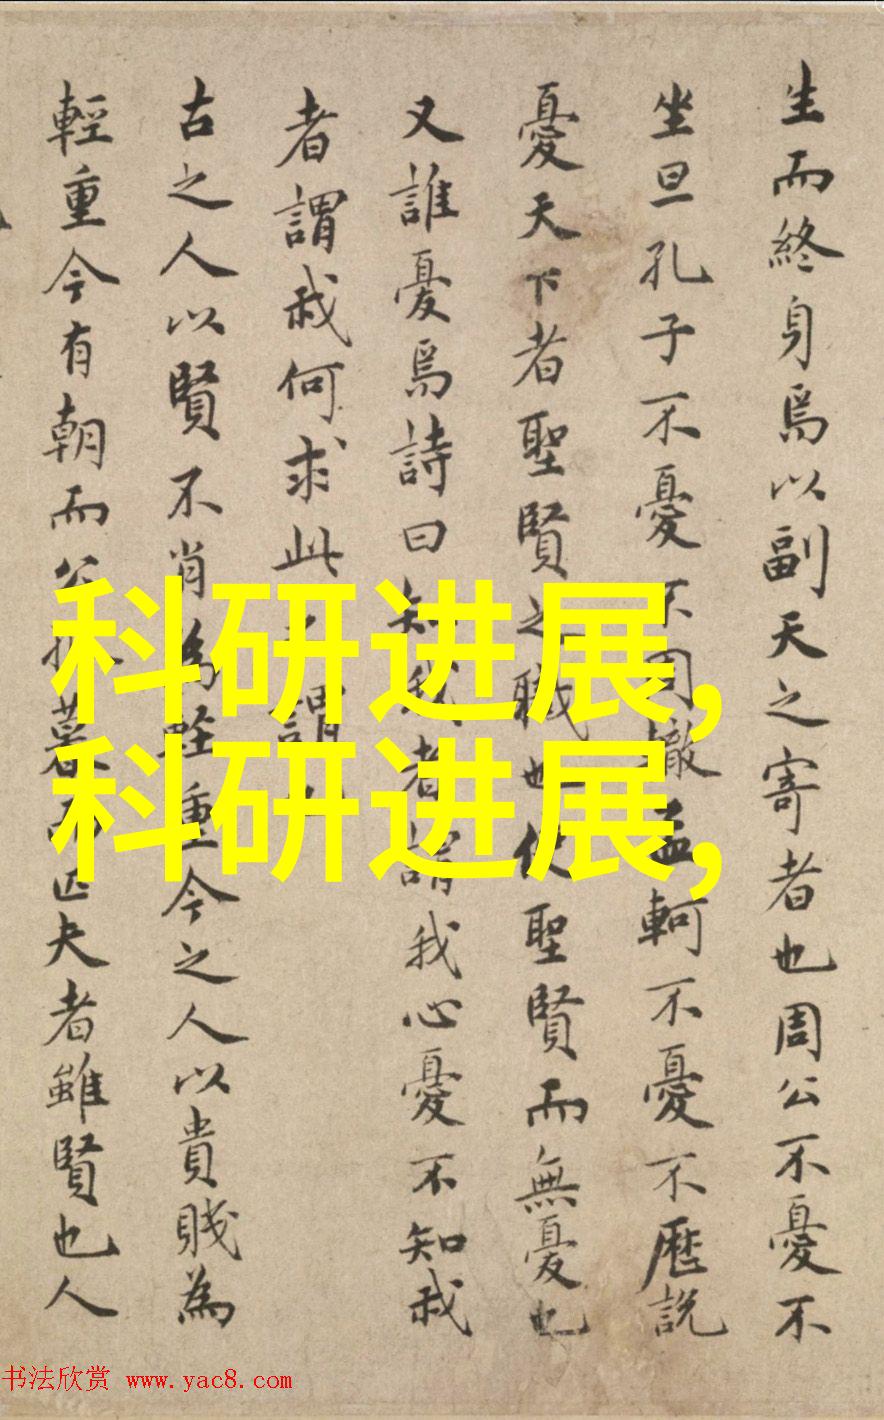 生而終身焉以副天之寄者也周公不憂不
坐旦孔子不憂不轍孟軻不憂不歷說
憂天下者聖賢之職也使聖賢而無憂也
又誰憂焉詩曰知我者謂我心憂不知我
者謂我何求此之謂也
古之人以賢不肖為輕重今之人以貴賤為
輕重今有朝而公暮而匹夫者雖賢也人
科研进展,
科研进展,
书法欣赏 www.yac8.com